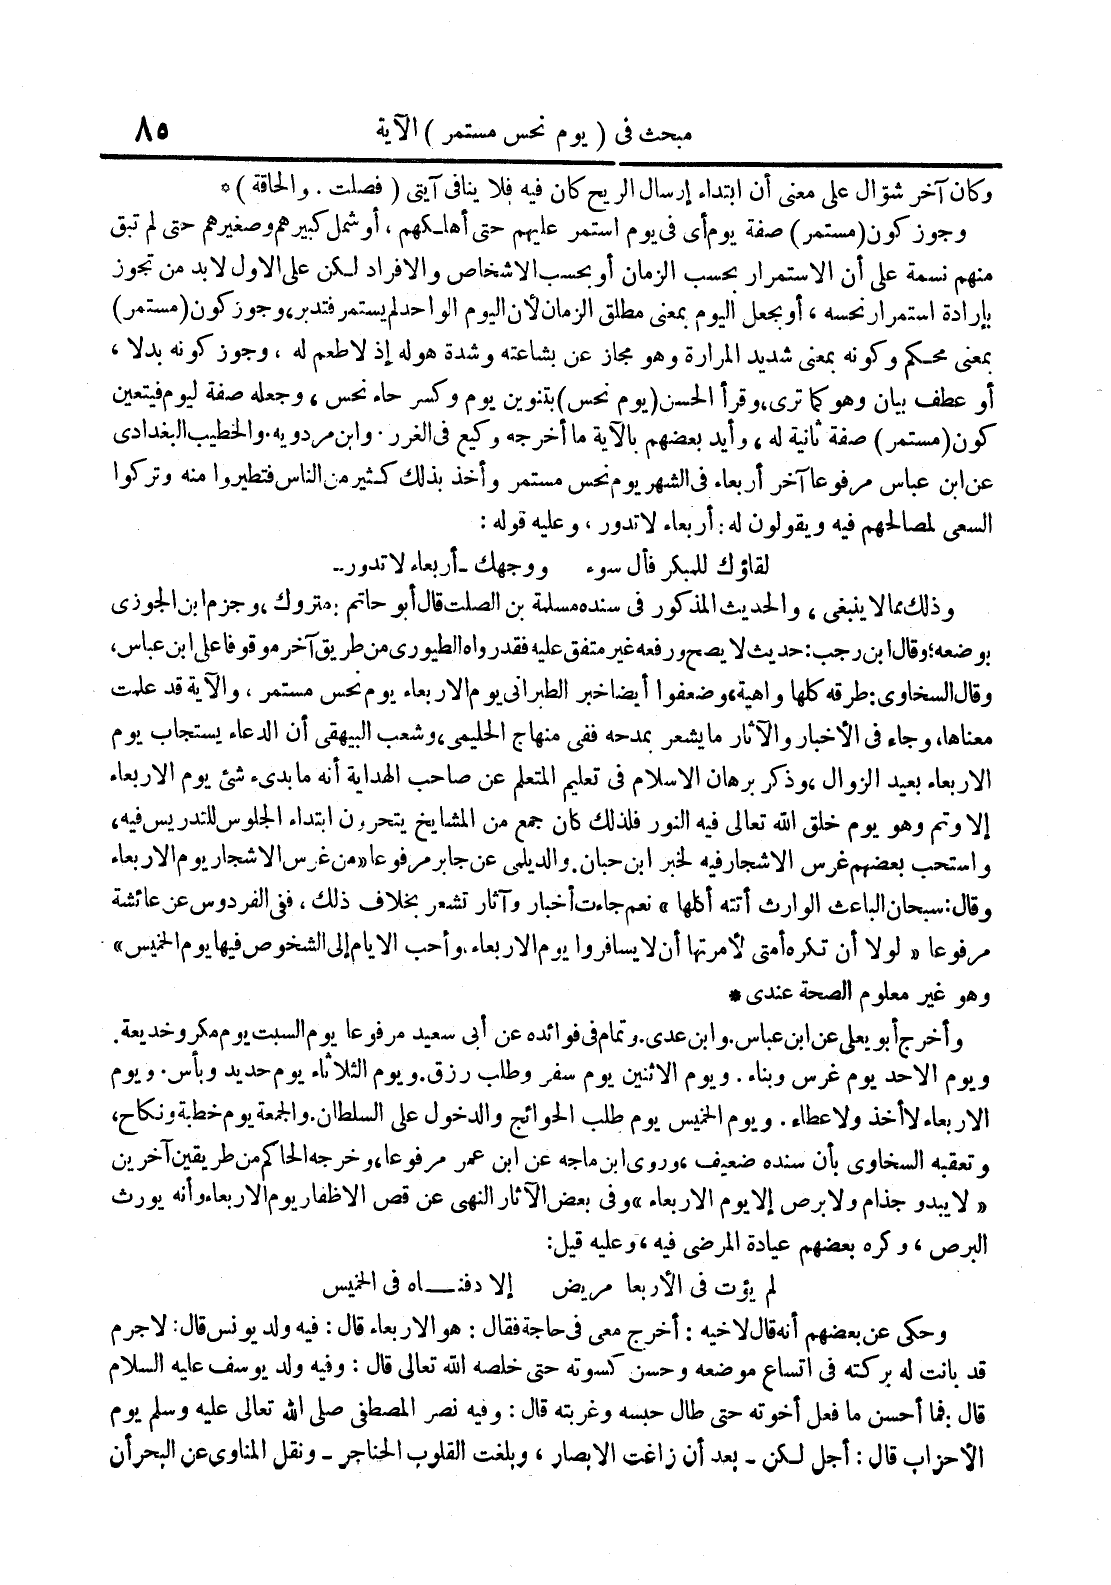 مبحث في ( يوم نحس مستمر ) الآية ٨٥
وكان آخر شوّال على معنى أن ابتداء إرسال الريح كان فيه فلا ينافى آيتى ( فصلت . والحاقة ) *
وجوز كون (مستمر) صفة يوم أى فى يوم استمر عليهم حتى أهلكهم ، أو شمل كبيرهم وصغيرهم حتى لم تبق
منهم نسمة على أن الاستمرار بحسب الزمان أو بحسب الاشخاص والافراد لكن على الاول لابد من تجوز
بإرادة استمرار نحسه ، أو بجعل اليوم بمعنى مطلق الزمان لأن اليوم الواحد لم يستمر فتدبر ، وجوز كون (مستمر)
بمعنى محكم وكونه بمعنى شديد المرارة وهو مجاز عن بشاعته وشدة هوله إذ لاطعم له ، وجوز كونه بدلا ،
أو عطف بيان وهو كما ترى ، وقرأ الحسن (يوم نحس) بتنوين يوم وكسر حاء نحس ، وجعله صفة ليوم فيتعين
كون (مستمر) صفة ثانية له ، وأيد بعضهم بالآية ما أخرجه وكيع فى الغرر . وابن مردويه . والخطيب البغدادى
عن ابن عباس مرفوعا آخر أربعاء فى الشهر يوم نحس مستمر وأخذ بذلك كثير من الناس فتطيروا منه وتركوا
السعى لمصالحهم فيه ويقولون له : أربعاء لاتدور ، وعليه قوله :
لقاؤك للمبكر فأل سوء ووجهك ـ أربعاء لاتدور ـ
وذلك مما لا ينبغى ، والحديث المذكور فى سنده مسلمة بن الصلت قال أبو حاتم : متروك ، وجزم ابن الجوزى
بوضعه ؛ وقال ابن رجب : حديث لا يصح ورفعه غير متفق عليه فقد رواه الطيورى من طريق آخر موقوفا على ابن عباس ،
وقال السخاوى : طرقه كلها واهية ، وضعفوا أيضا خبر الطبرانى يوم الاربعاء يوم نحس مستمر ، والآية قد علمت
معناها ، وجاء فى الأخبار والآثار ما يشعر بمدحه ففى منهاج الحليمى ، وشعب البيهقى أن الدعاء يستجاب يوم
الاربعاء بعيد الزوال ، وذكر برهان الاسلام فى تعليم المتعلم عن صاحب الهداية أنه ما بدىء شئ يوم الاربعاء
إلا وتم وهو يوم خلق الله تعالى فيه النور فلذلك كان جمع من المشايخ يتحرون ابتداء الجلوس للتدريس فيه ،
واستحب بعضهم غرس الاشجار فيه لخبر ابن حبان . والديلمى عن جابر مرفوعا « من غرس الاشجار يوم الاربعاء
وقال : سبحان الباعث الوارث أتته أكلها » نعم جاءت أخبار وآثار تشعر بخلاف ذلك ، ففى الفردوس عن عائشة
مرفوعا « لولا أن تكره أمتى لأمرتها أن لا يسافروا يوم الاربعاء ، وأحب الايام إلى الشخوص فيها يوم الخميس »
وهو غير معلوم الصحة عندى *
وأخرج أبو يعلى عن ابن عباس . وابن عدى . وتمام فى فوائده عن أبى سعيد مرفوعا يوم السبت يوم مكر وخديعة .
ويوم الاحد يوم غرس وبناء . ويوم الاثنين يوم سفر وطلب رزق . ويوم الثلاثاء يوم حديد وبأس . ويوم
الاربعاء لا أخذ ولا عطاء . ويوم الخميس يوم طلب الحوائج والدخول على السلطان . والجمعة يوم خطبة ونكاح ،
وتعقبه السخاوى بأن سنده ضعيف ، وروى ابن ماجه عن ابن عمر مرفوعا ، وخرجه الحاكم من طريقين آخرين
« لا يبدو جذام ولا برص إلا يوم الاربعاء » وفى بعض الآثار النهى عن قص الاظفار يوم الاربعاء وأنه يورث
البرص ، وكره بعضهم عيادة المرضى فيه ، وعليه قيل :
لم يؤت فى الأربعا مريض إلا دفنـــاه فى الخميس
وحكى عن بعضهم أنه قال لاخيه : أخرج معى فى حاجة فقال : هو الاربعاء قال : فيه ولد يونس قال : لاجرم
قد بانت له بركته فى اتساع موضعه وحسن كسوته حتى خلصه الله تعالى قال : وفيه ولد يوسف عليه السلام
قال : فما أحسن ما فعل أخوته حتى طال حبسه وغربته قال : وفيه نصر المصطفى صلى الله تعالى عليه وسلم يوم
الأحزاب قال : أجل لكن ـ بعد أن زاغت الابصار ، وبلغت القلوب الحناجر ـ ونقل المناوى عن البحر أن